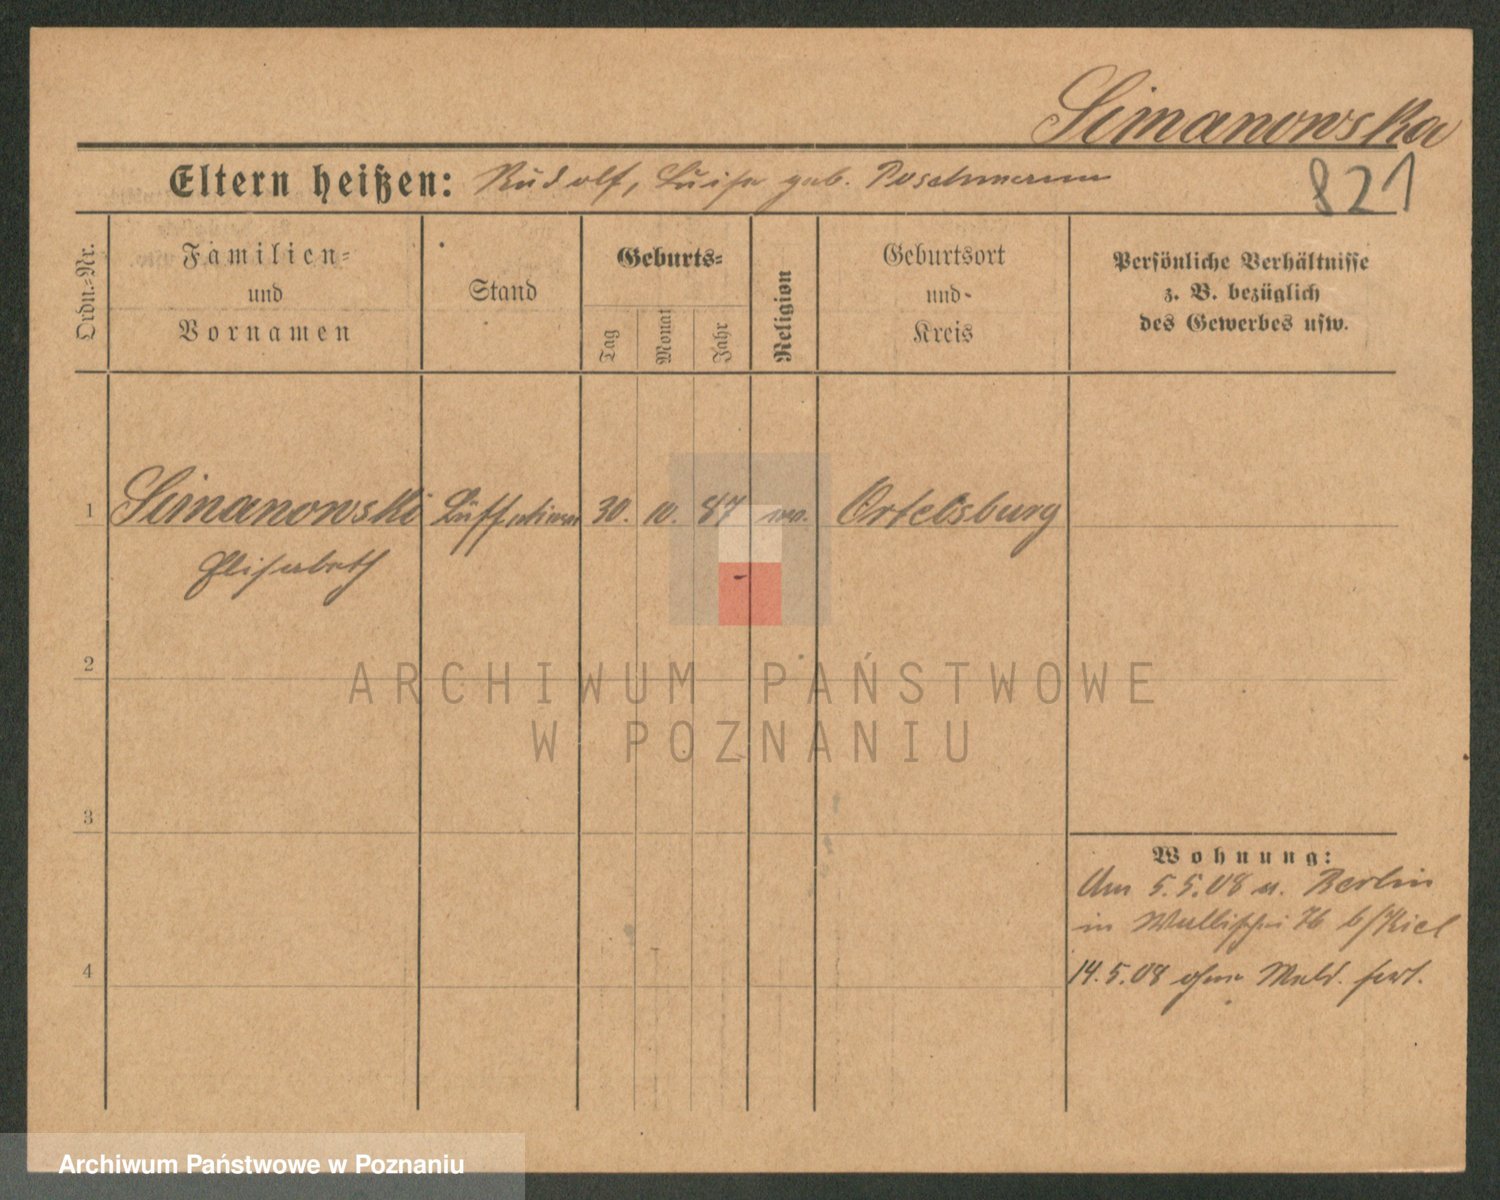 Simanowska
821
Eltern heißen: Rudolf, Luise geb. Poschmann
Ordn.-Nr.
Familien-
und
Vornamen
Stand
Geburts-
Tag
Monat
Jahr
Religion
Geburtsort
und
Kreis
Persönliche Verhältnisse
z. B. bezüglich
des Gewerbes usw.
1 Simanowski 30. 10. 87 Ortelsburg
Elisabeth
2
3
4
Wohnung:
Am 5.5.08 v. Berlin
in Wallischei 76 b/Kiel
14.5.08 ohne Meld. fort.
ARCHIWUM PAŃSTWOWE
W POZNANIU
Archiwum Państwowe w Poznaniu